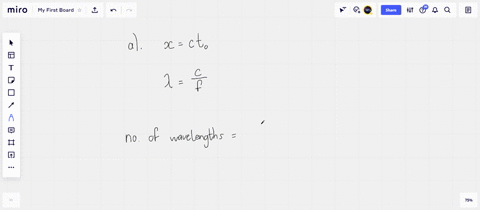 miro My First Board Share
a). x = ct₀
λ = c/f
no. of wavelengths =
75%